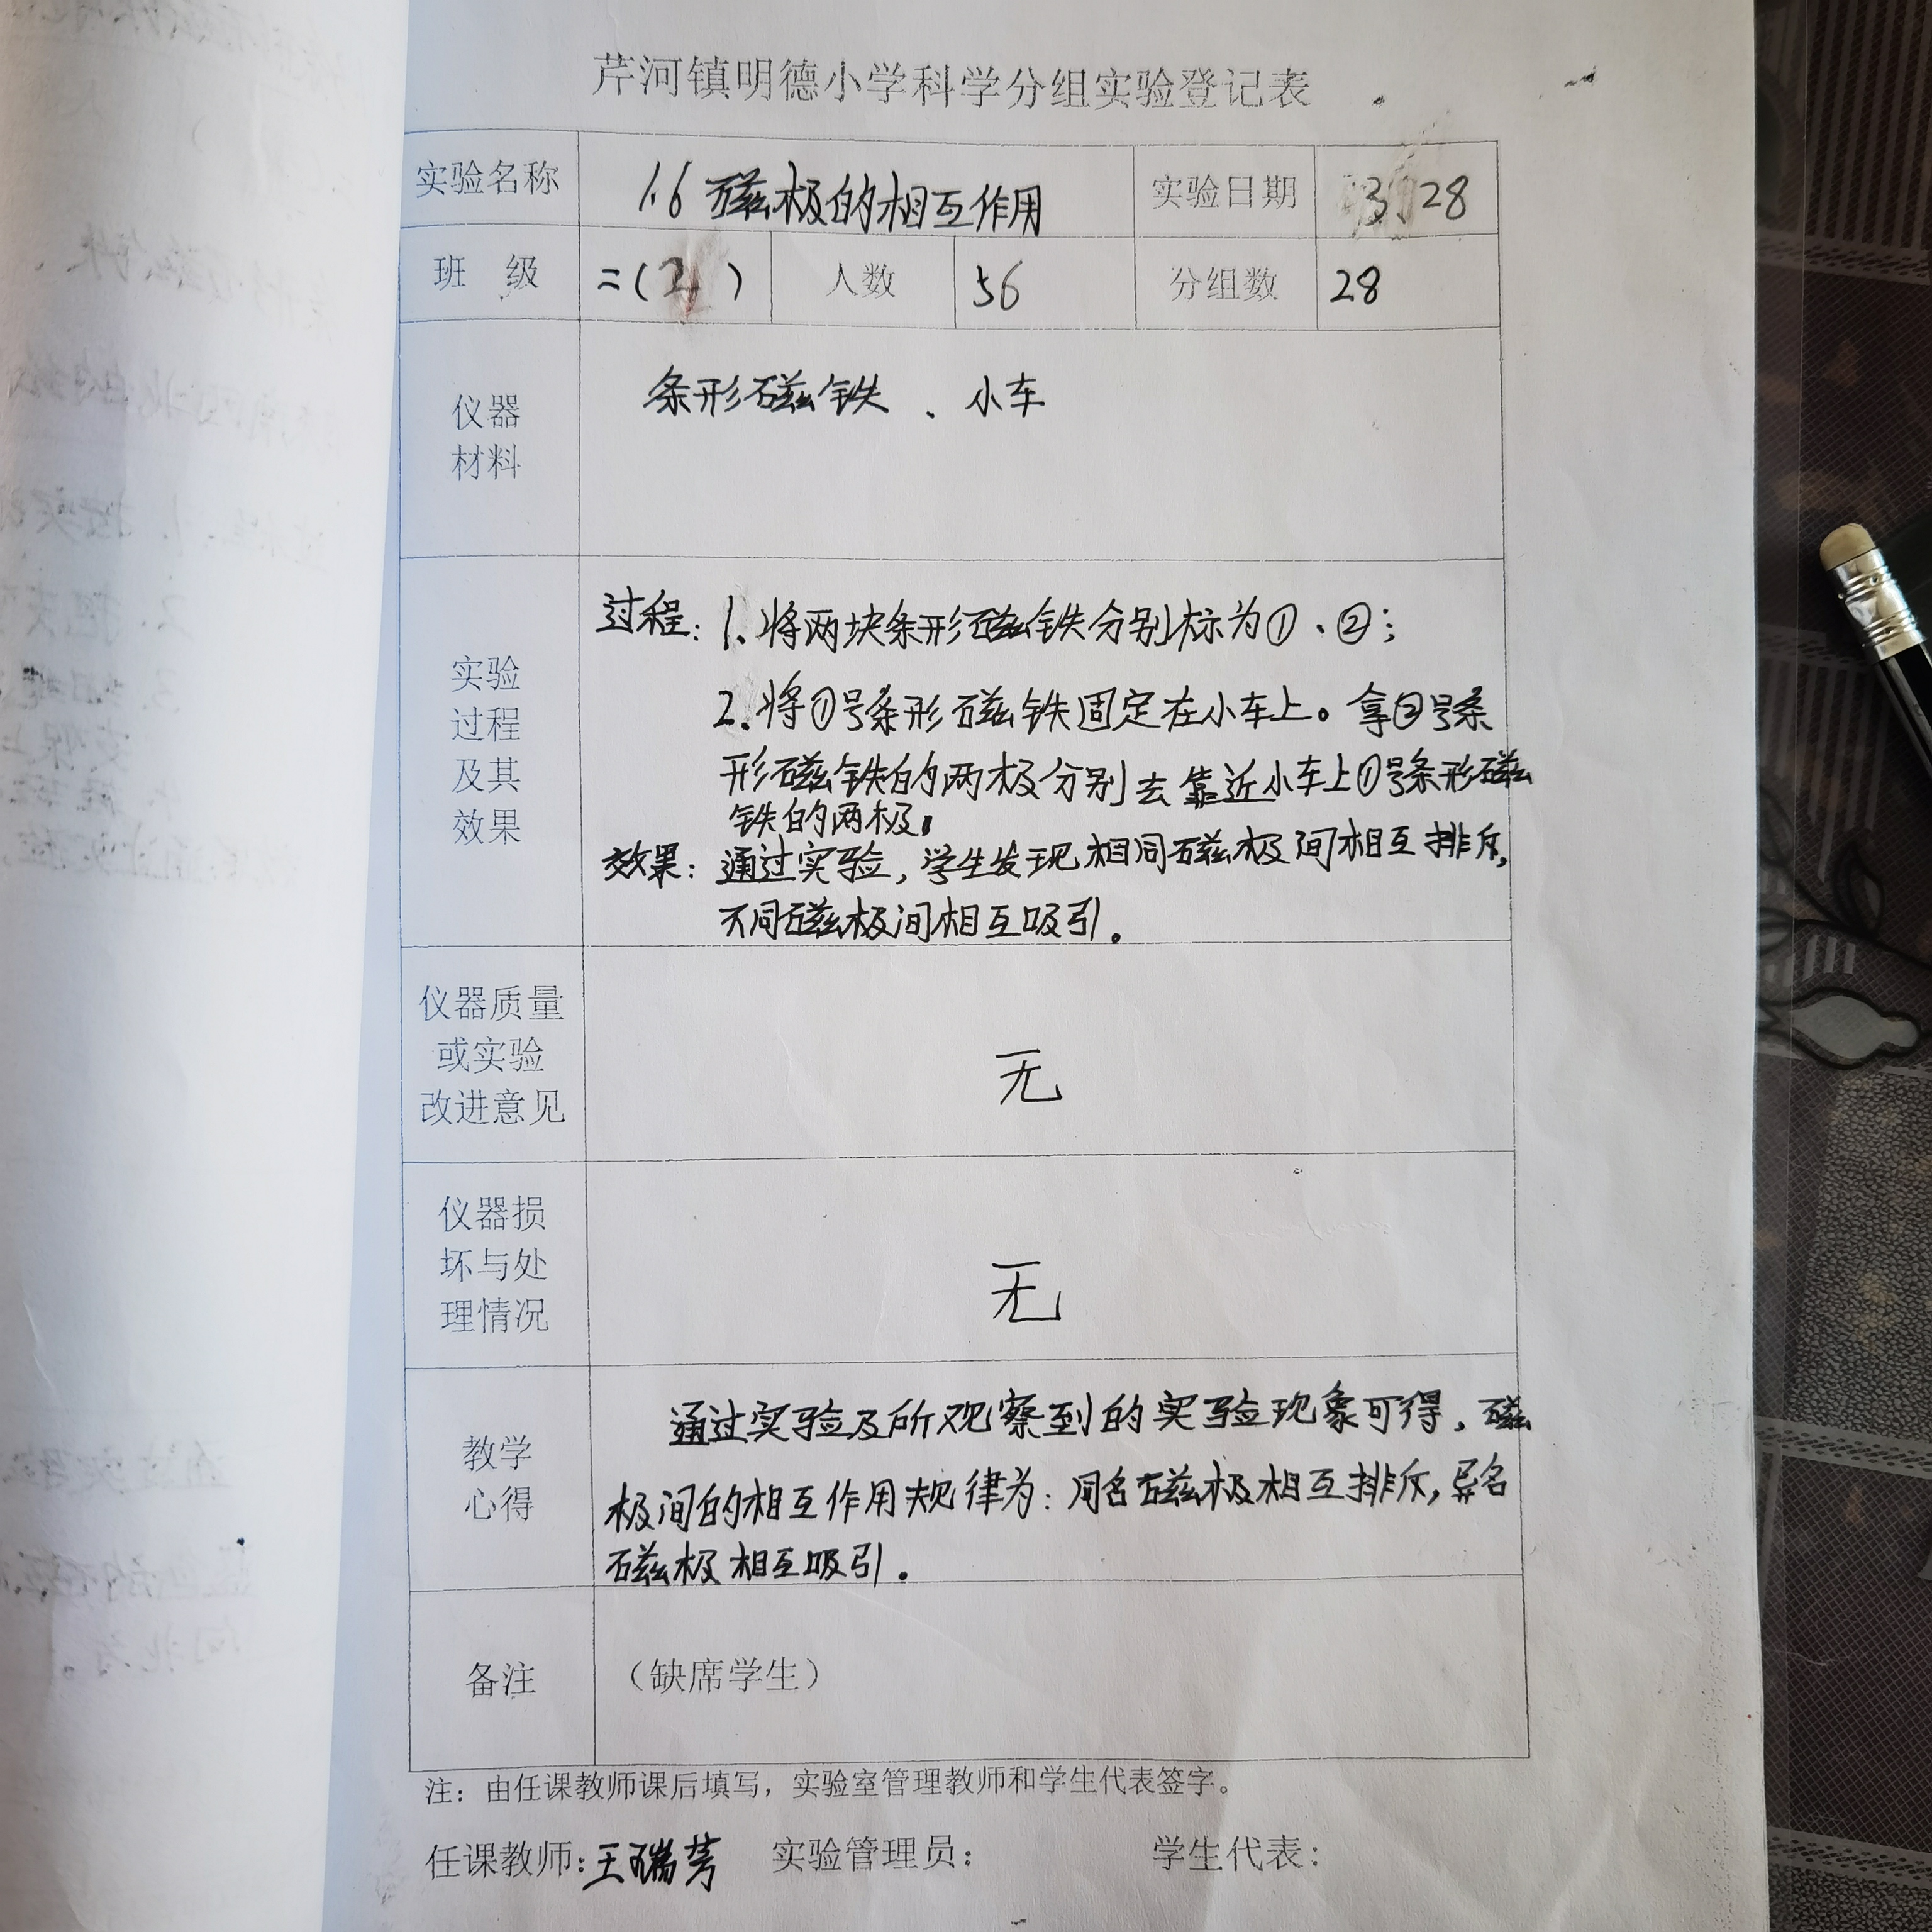 芹河镇明德小学科学分组实验登记表
实验名称 1.6 磁极的相互作用 实验日期 3 28
班 级 二( ) 人数 56 分组数 28
条形磁铁、小车
仪器
材料
过程: 1.将两块条形磁铁分别标为①、②;
2.将①号条形磁铁固定在小车上。拿②号条
形磁铁的两极分别去靠近小车上①号条形磁
铁的两极。
效果:通过实验,学生发现相同磁极间相互排斥,
不同磁极间相互吸引。
实验
过程
及其
效果
仪器质量
或实验
改进意见
无
仪器损
坏与处
理情况
无
通过实验及所观察到的实验现象可得,磁
极间的相互作用规律为:同名磁极相互排斥,异名
磁极相互吸引。
教学
心得
备注 (缺席学生)
注:由任课教师课后填写,实验室管理教师和学生代表签字。
任课教师:王瑞芳 实验管理员: 学生代表: